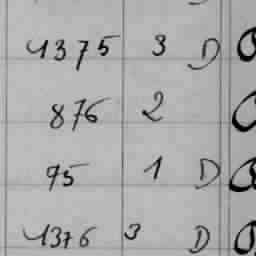 1375 3 D
876 2
75 1 D
1376 3 D